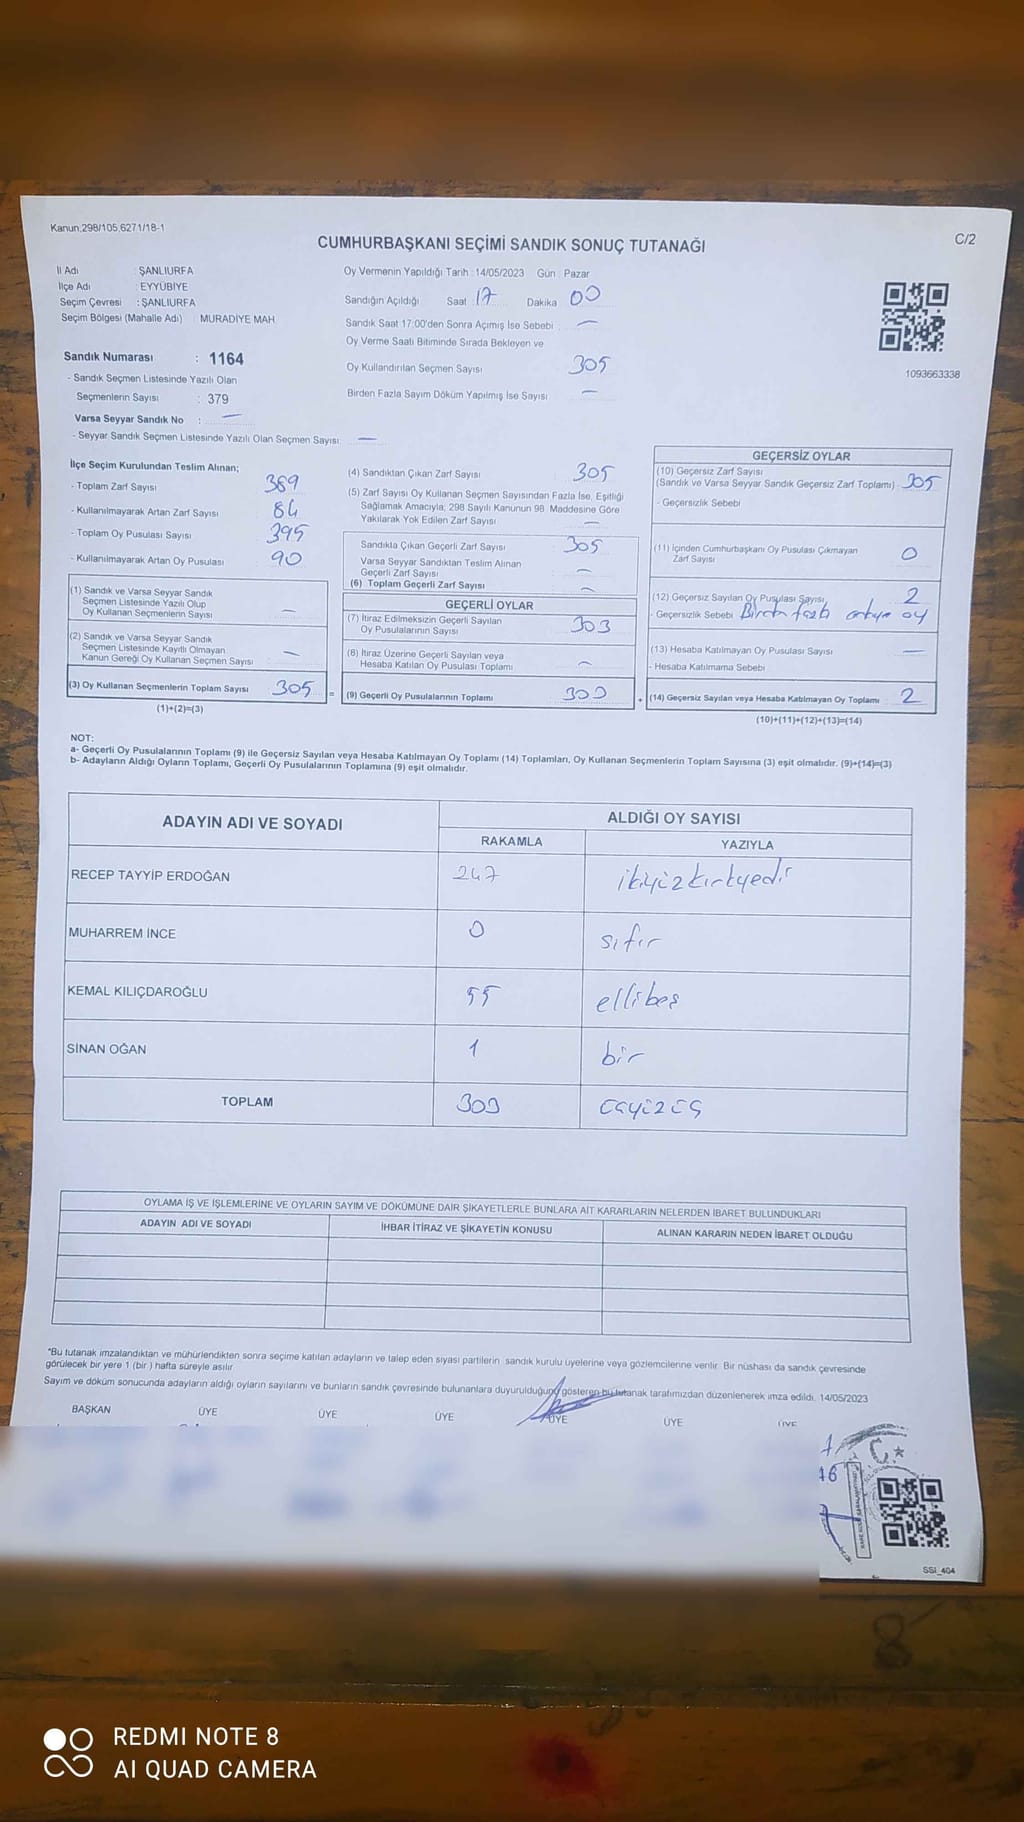 Kanun;298/105,6271/18-1
C/2
CUMHURBAŞKANI SEÇİMİ SANDIK SONUÇ TUTANAĞI
İl Adı : ŞANLIURFA
İlçe Adı : EYYÜBİYE
Seçim Çevresi : ŞANLIURFA
Seçim Bölgesi (Mahalle Adı) MURADİYE MAH.
Sandık Numarası : 1164
- Sandık Seçmen Listesinde Yazılı Olan
Seçmenlerin Sayısı : 379
Varsa Seyyar Sandık No : —
- Seyyar Sandık Seçmen Listesinde Yazılı Olan Seçmen Sayısı: —
Oy Vermenin Yapıldığı Tarih : 14/05/2023 Gün : Pazar
Sandığın Açıldığı Saat : 17 Dakika 00
Sandık Saat 17:00'den Sonra Açımış İse Sebebi —
Oy Verme Saati Bitiminde Sırada Bekleyen ve
Oy Kullandırılan Seçmen Sayısı 305
Birden Fazla Sayım Döküm Yapılmış İse Sayısı —
1093663338
İlçe Seçim Kurulundan Teslim Alınan;
- Toplam Zarf Sayısı 389
- Kullanılmayarak Artan Zarf Sayısı 84
- Toplam Oy Pusulası Sayısı 395
- Kullanılmayarak Artan Oy Pusulası 90
(1) Sandık ve Varsa Seyyar Sandık
Seçmen Listesinde Yazılı Olup
Oy Kullanan Seçmenlerin Sayısı —
(2) Sandık ve Varsa Seyyar Sandık
Seçmen Listesinde Kayıtlı Olmayan
Kanun Gereği Oy Kullanan Seçmen Sayısı —
(3) Oy Kullanan Seçmenlerin Toplam Sayısı 305 =
(1)+(2)=(3)
(4) Sandıktan Çıkan Zarf Sayısı 305
(5) Zarf Sayısı Oy Kullanan Seçmen Sayısından Fazla İse, Eşitliği
Sağlamak Amacıyla; 298 Sayılı Kanunun 98. Maddesine Göre
Yakılarak Yok Edilen Zarf Sayısı —
Sandıkla Çıkan Geçerli Zarf Sayısı 305
Varsa Seyyar Sandıktan Teslim Alınan
Geçerli Zarf Sayısı —
(6) Toplam Geçerli Zarf Sayısı —
GEÇERLİ OYLAR
(7) İtiraz Edilmeksizin Geçerli Sayılan
Oy Pusulalarının Sayısı 303
(8) İtiraz Üzerine Geçerli Sayılan veya
Hesaba Katılan Oy Pusulası Toplamı —
(9) Geçerli Oy Pusulalarının Toplamı 303 +
GEÇERSİZ OYLAR
(10) Geçersiz Zarf Sayısı
(Sandık ve Varsa Seyyar Sandık Geçersiz Zarf Toplamı) 305
- Geçersizlik Sebebi
(11) İçinden Cumhurbaşkanı Oy Pusulası Çıkmayan
Zarf Sayısı 0
(12) Geçersiz Sayılan Oy Pusulası Sayısı 2
- Geçersizlik Sebebi Birden fazla oy
(13) Hesaba Katılmayan Oy Pusulası Sayısı —
- Hesaba Katılmama Sebebi
(14) Geçersiz Sayılan veya Hesaba Katılmayan Oy Toplamı 2
(10)+(11)+(12)+(13)=(14)
NOT:
a- Geçerli Oy Pusulalarının Toplamı (9) ile Geçersiz Sayılan veya Hesaba Katılmayan Oy Toplamı (14) Toplamları, Oy Kullanan Seçmenlerin Toplam Sayısına (3) eşit olmalıdır. (9)+(14)=(3)
b- Adayların Aldığı Oyların Toplamı, Geçerli Oy Pusulalarının Toplamına (9) eşit olmalıdır.
ADAYIN ADI VE SOYADI ALDIĞI OY SAYISI
RAKAMLA YAZIYLA
RECEP TAYYİP ERDOĞAN 247 ikiyüzkırkyedi
MUHARREM İNCE 0 sıfır
KEMAL KILIÇDAROĞLU 55 ellibeş
SİNAN OĞAN 1 bir
TOPLAM 303 üçyüzüç
OYLAMA İŞ VE İŞLEMLERİNE VE OYLARIN SAYIM VE DÖKÜMÜNE DAİR ŞİKAYETLERLE BUNLARA AİT KARARLARIN NELERDEN İBARET BULUNDUKLARI
ADAYIN ADI VE SOYADI İHBAR İTİRAZ VE ŞİKAYETİN KONUSU ALINAN KARARIN NEDEN İBARET OLDUĞU
*Bu tutanak imzalandıktan ve mühürlendikten sonra seçime katılan adayların ve talep eden siyasi partilerin sandık kurulu üyelerine veya gözlemcilerine verilir. Bir nüshası da sandık çevresinde
görülecek bir yere 1 (bir ) hafta süreyle asılır.
Sayım ve döküm sonucunda adayların aldığı oyların sayılarını ve bunların sandık çevresinde bulunanlara duyurulduğunu gösteren bu tutanak tarafımızdan düzenlenerek imza edildi. 14/05/2023
BAŞKAN ÜYE ÜYE ÜYE ÜYE ÜYE ÜYE
SSI_404
REDMI NOTE 8
AI QUAD CAMERA